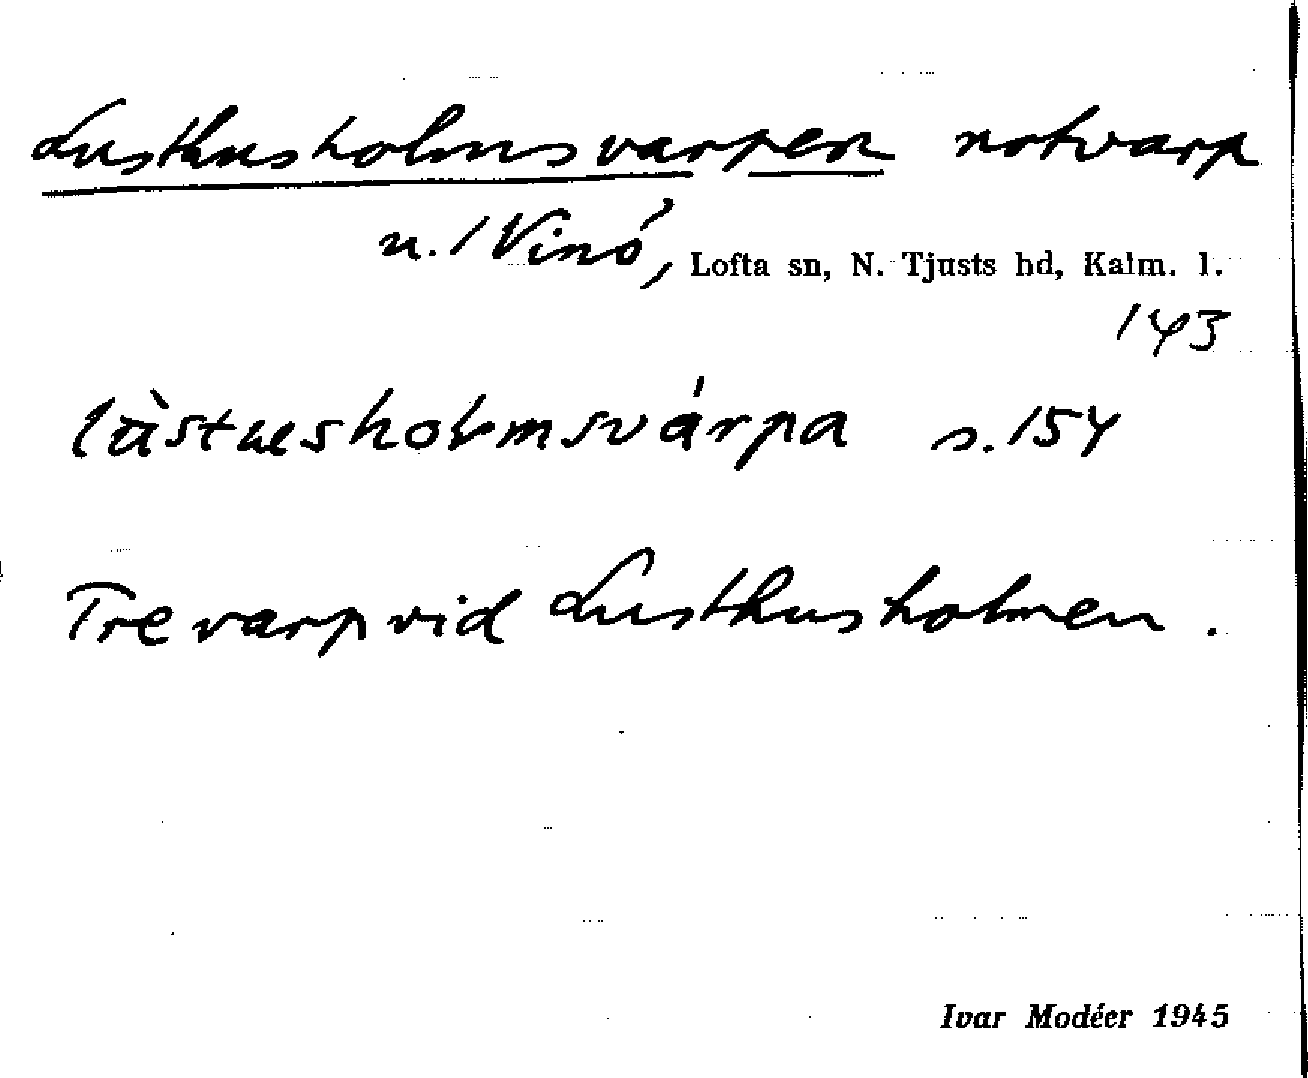 Lusthusholmsvarpen notvarp
u. / Vinö, Lofta sn, N. Tjusts hd, Kalm. l.
143
lùstuesholmsvárpa s. 154
Tre varp vid Lusthusholmen.
Ivar Modéer 1945